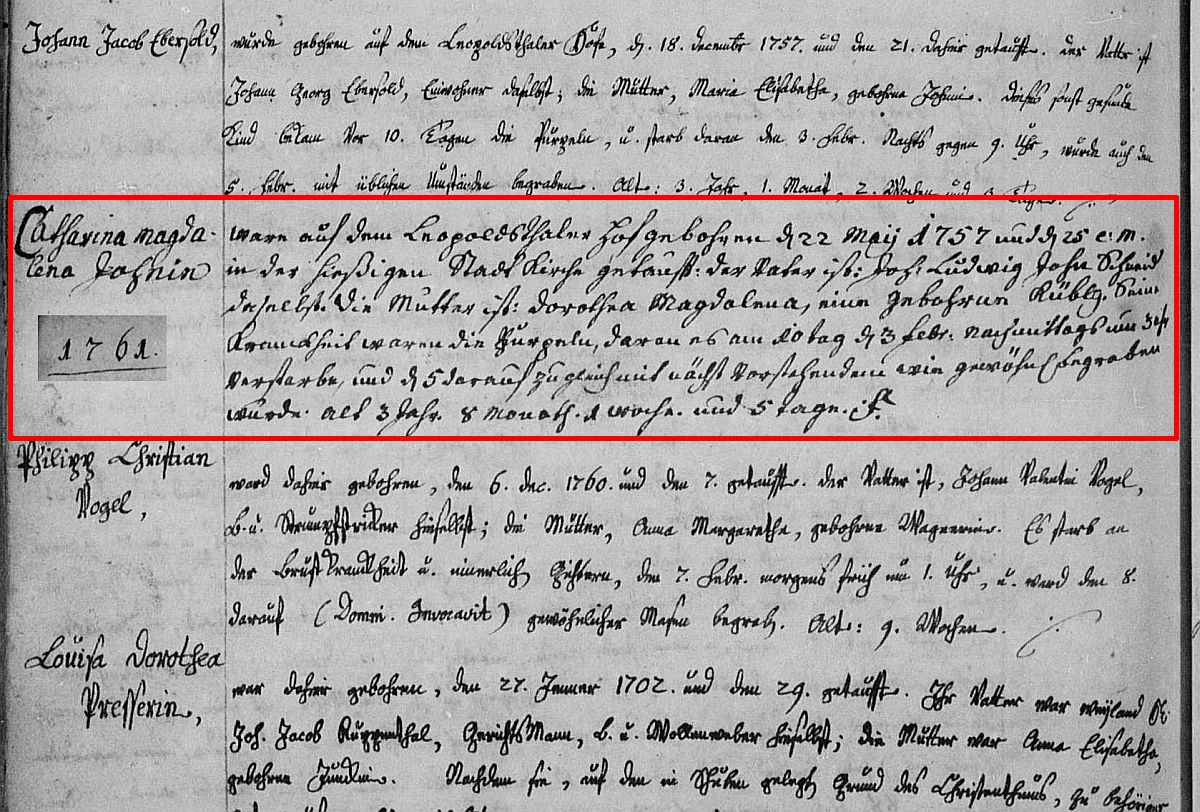 Johann Jacob Ebersold,
wurde gebohren auf dem Leopoldsthaler Hofe, d. 18. decembr 1757. und den 21. dahier getaufft. der Vatter ist
Johann Georg Ebersold, Einwohner daselbst; die Mütter, Maria Elisabetha, gebohrne Johnin. Dieses sonst gesunde
Kind bekam vor 10. Tagen die Purpeln, u. starb daran den 3. Febr. Nachts gegen 9. Uhr, wurde auch den
5. Febr. mit üblichen Umständen begraben. Alt: 3. Jahr, 1. Monat, 2. Wochen und 3. Tage.
Catharina Magda-
lena Johnin
1761.
ware auf dem Leopoldsthaler Hof gebohren d 22 Maij 1757 und d 25 e. m.
in der hießigen Stadt Kirche getaufft: der Vater ist: Joh: Ludwig John Schneid
daselbst. die Mutter ist: Dorothea Magdalena, eine gebohrne Küblg. Seine
Kranckheit waren die Purpeln, daran es am 10 tag d 3 Febr: nachmittags um 3 uhr
verstarbe, und d 5 darauf zugleich mit nächst Vorstehendem wie gewöhnl begraben
wurde. alt 3 Jahr. 8 Monath. 1 woche. und 5 tage.
Philipp Christian
Vogel,
ward dahier gebohren, den 6. dec. 1760. und den 7. getaufft. der Vatter ist, Johann Valentin Vogel,
b. u. Strumpfstricker hieselbst; die Mütter, Anna Margaretha, gebohrne Wagnerin. Es starb an
der Brustkrankheit u. innerlich Gichtern, den 7. Febr. morgens früh um 1. Uhr, u. ward den 8.
darauf (Domin. Invocavit) gewöhnlicher Masen begrab. Alt: 9. Wochen.
Louisa Dorothea
Presserin,
war dahier gebohren, den 27. Jenner 1702. und den 29. getaufft. Ihr Vatter war weyland H.
Joh. Jacob Ruppenthal, Gerichts Mann, b. u. Wollenweber hieselbst; die Mutter war Anna Elisabetha,
gebohrne Jundlin. Nachdem sie, auf den in Schulen gelegt Grund des Christenthums, zu behöriger